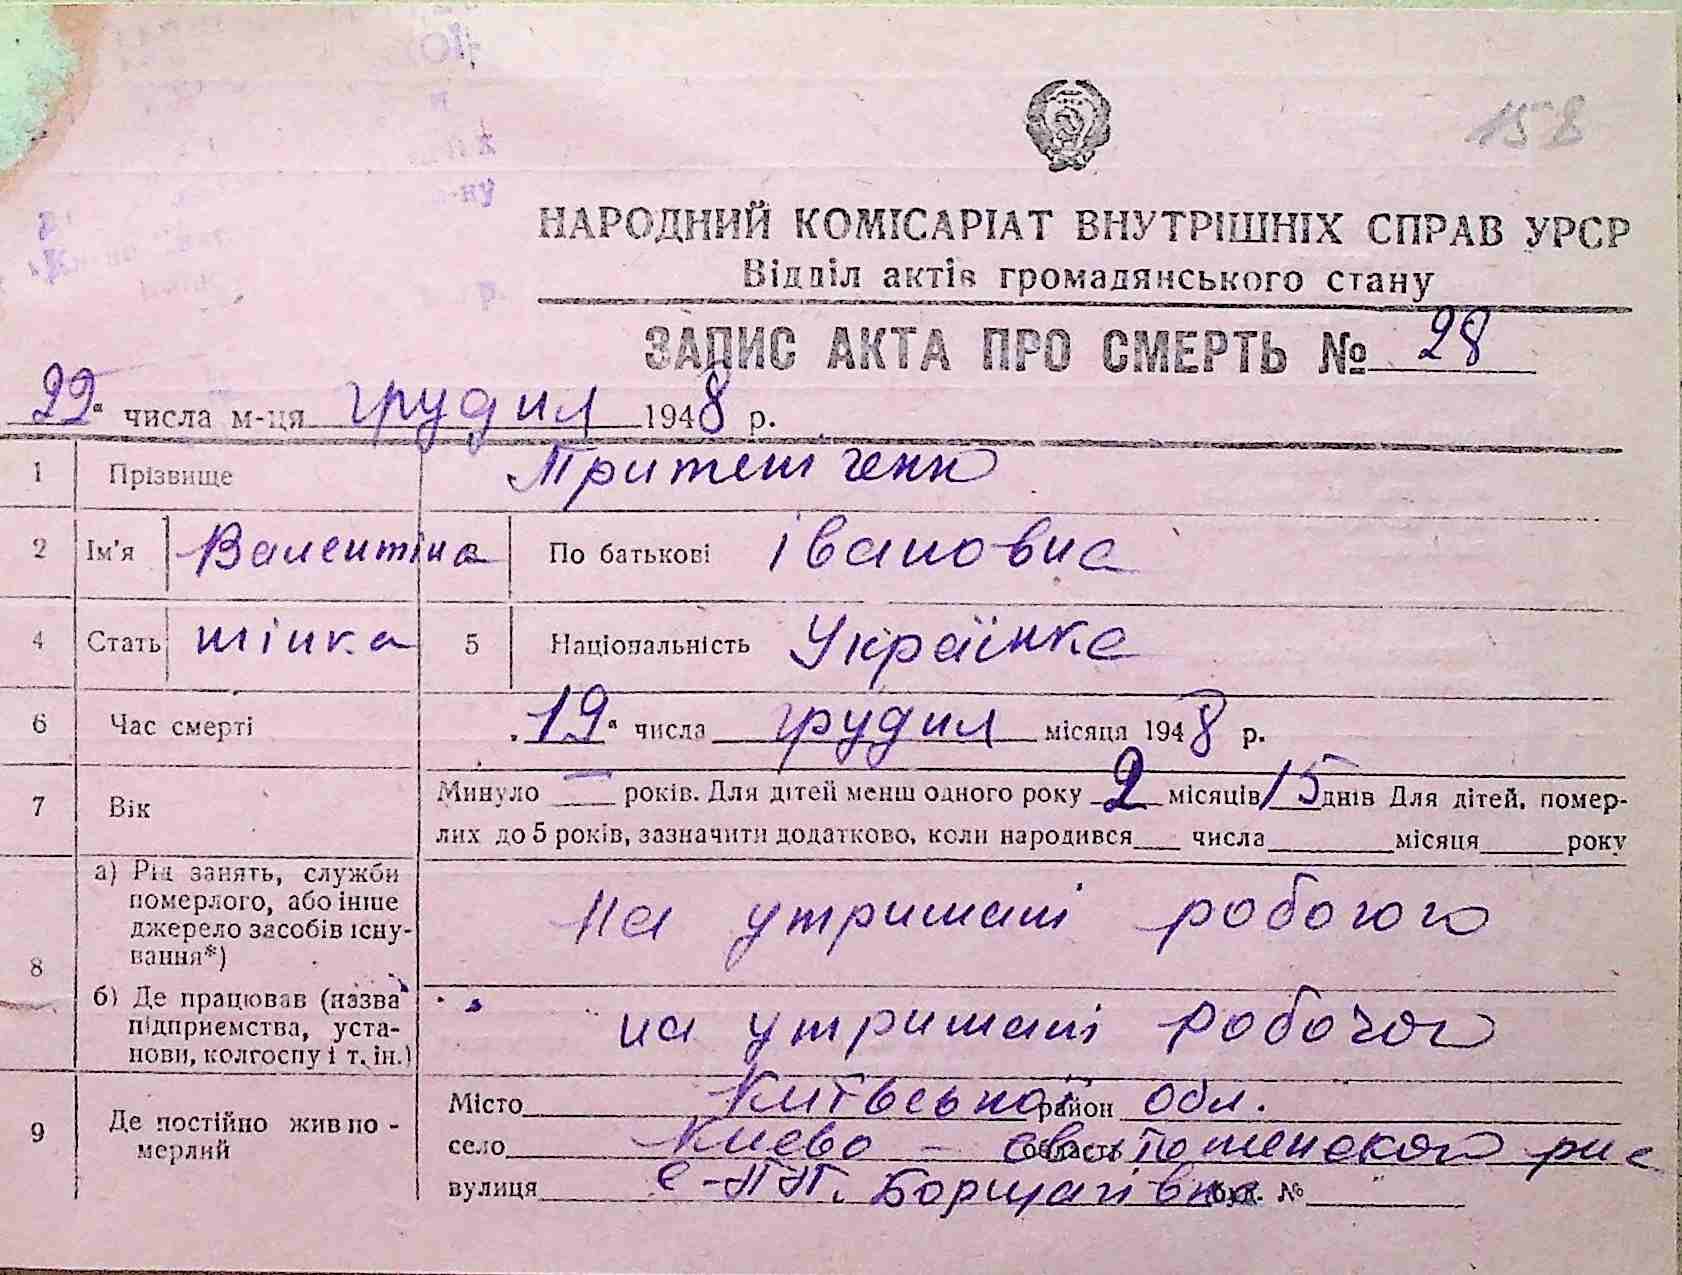 158
НАРОДНИЙ КОМІСАРІАТ ВНУТРІШНІХ СПРАВ УРСР
Відділ актів громадянського стану
ЗАПИС АКТА ПРО СМЕРТЬ № 28
22 " числа м-ця грудня 1948 р.
1 Прізвище
2 Ім'я Валентіна По батькові Івановна
4 Стать жінка 5 Національність Українка
6 Час смерті „ 19 " числа грудня місяця 1948 р.
7 Вік Минуло — років. Для дітей менш одного року 2 місяців 15 днів Для дітей, помер-
лих до 5 років, зазначити додатково, коли народився числа місяця року
8 а) Рід занять, служби померлого, або інше джерело засобів існування*) на утримані робочого
б) Де працював (назва підприємства, установи, колгоспу і т. ін.) на утримані робочог
9 Де постійно жив померлий Місто Київської район обл.
село Києво - святошенского область
вулиця с-ПП. Борщагівка буд. №